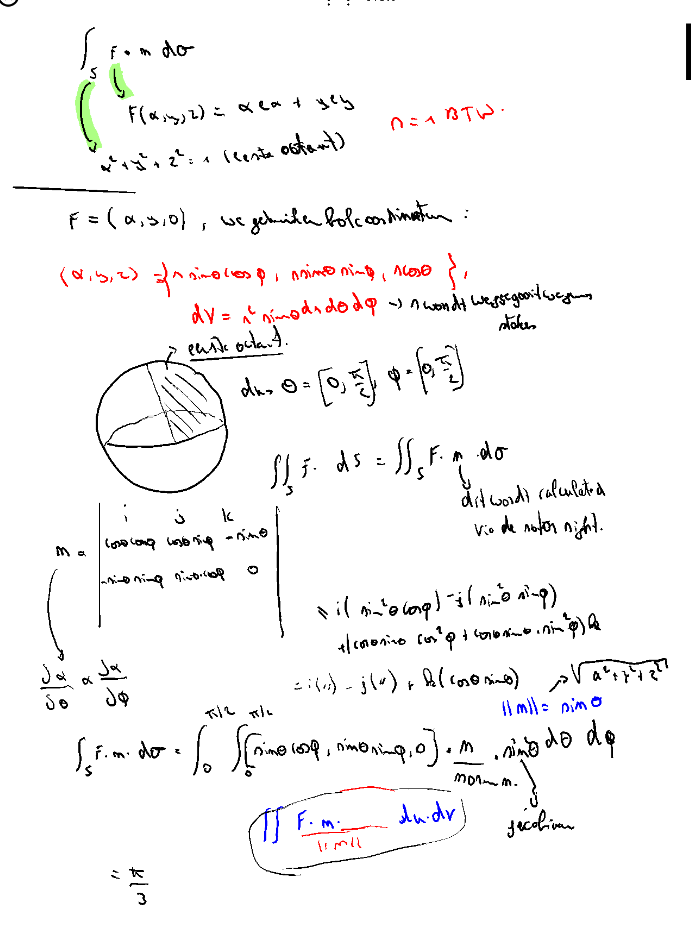 ∫_S F • n dσ
F(x,y,z) = x ex + y ey
x² + y² + z² = 1 (eerste octant)
r = 1 BTW.
F = (x, y, 0), we gebruiken bolcoordinaten :
(x, y, z) = { r sinθ cosφ, r sinθ sinφ, r cosθ },
dV = r² sinθ dr dθ dφ → r wordt weggegooid wegens
stokes
→ eerste octant.
dus θ = [0, π/2], φ = [0, π/2]
∬_S F • dS = ∬_S F • n • dσ
dit wordt calculated
via de rotor right.
n = | i j k |
| cosθcosφ cosθ sinφ -sinθ |
| -sinθ sinφ sinθ cosφ 0 |
= i( sin²θ cosφ) - j( sin²θ sinφ)
+(cosθ sinθ cos²φ + cosθ sinθ . sin²φ) k
∂x/∂θ × ∂x/∂φ
= i(") - j(") + k(cosθ sinθ)
→ √x² + y² + z²
||n|| = sinθ
∫_S F. n. dσ = ∫_0^π/2 ∫_0^π/2 [sinθ cosφ, sinθ sinφ, 0] • n / norm n. • sinθ dθ dφ
jacobiaan
∬ F. n. / ||n|| du.dv
= π/3